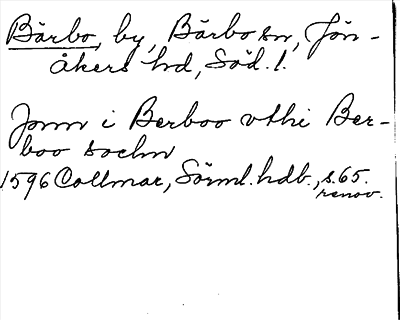 Bärbo, by, Bärbo sn, Jön-
åkers hd, Söd. l.
Jonn i Berboo vthi Ber-
boo sochn
1596 Collmar, Sörml. hdb., s. 65.
renov.